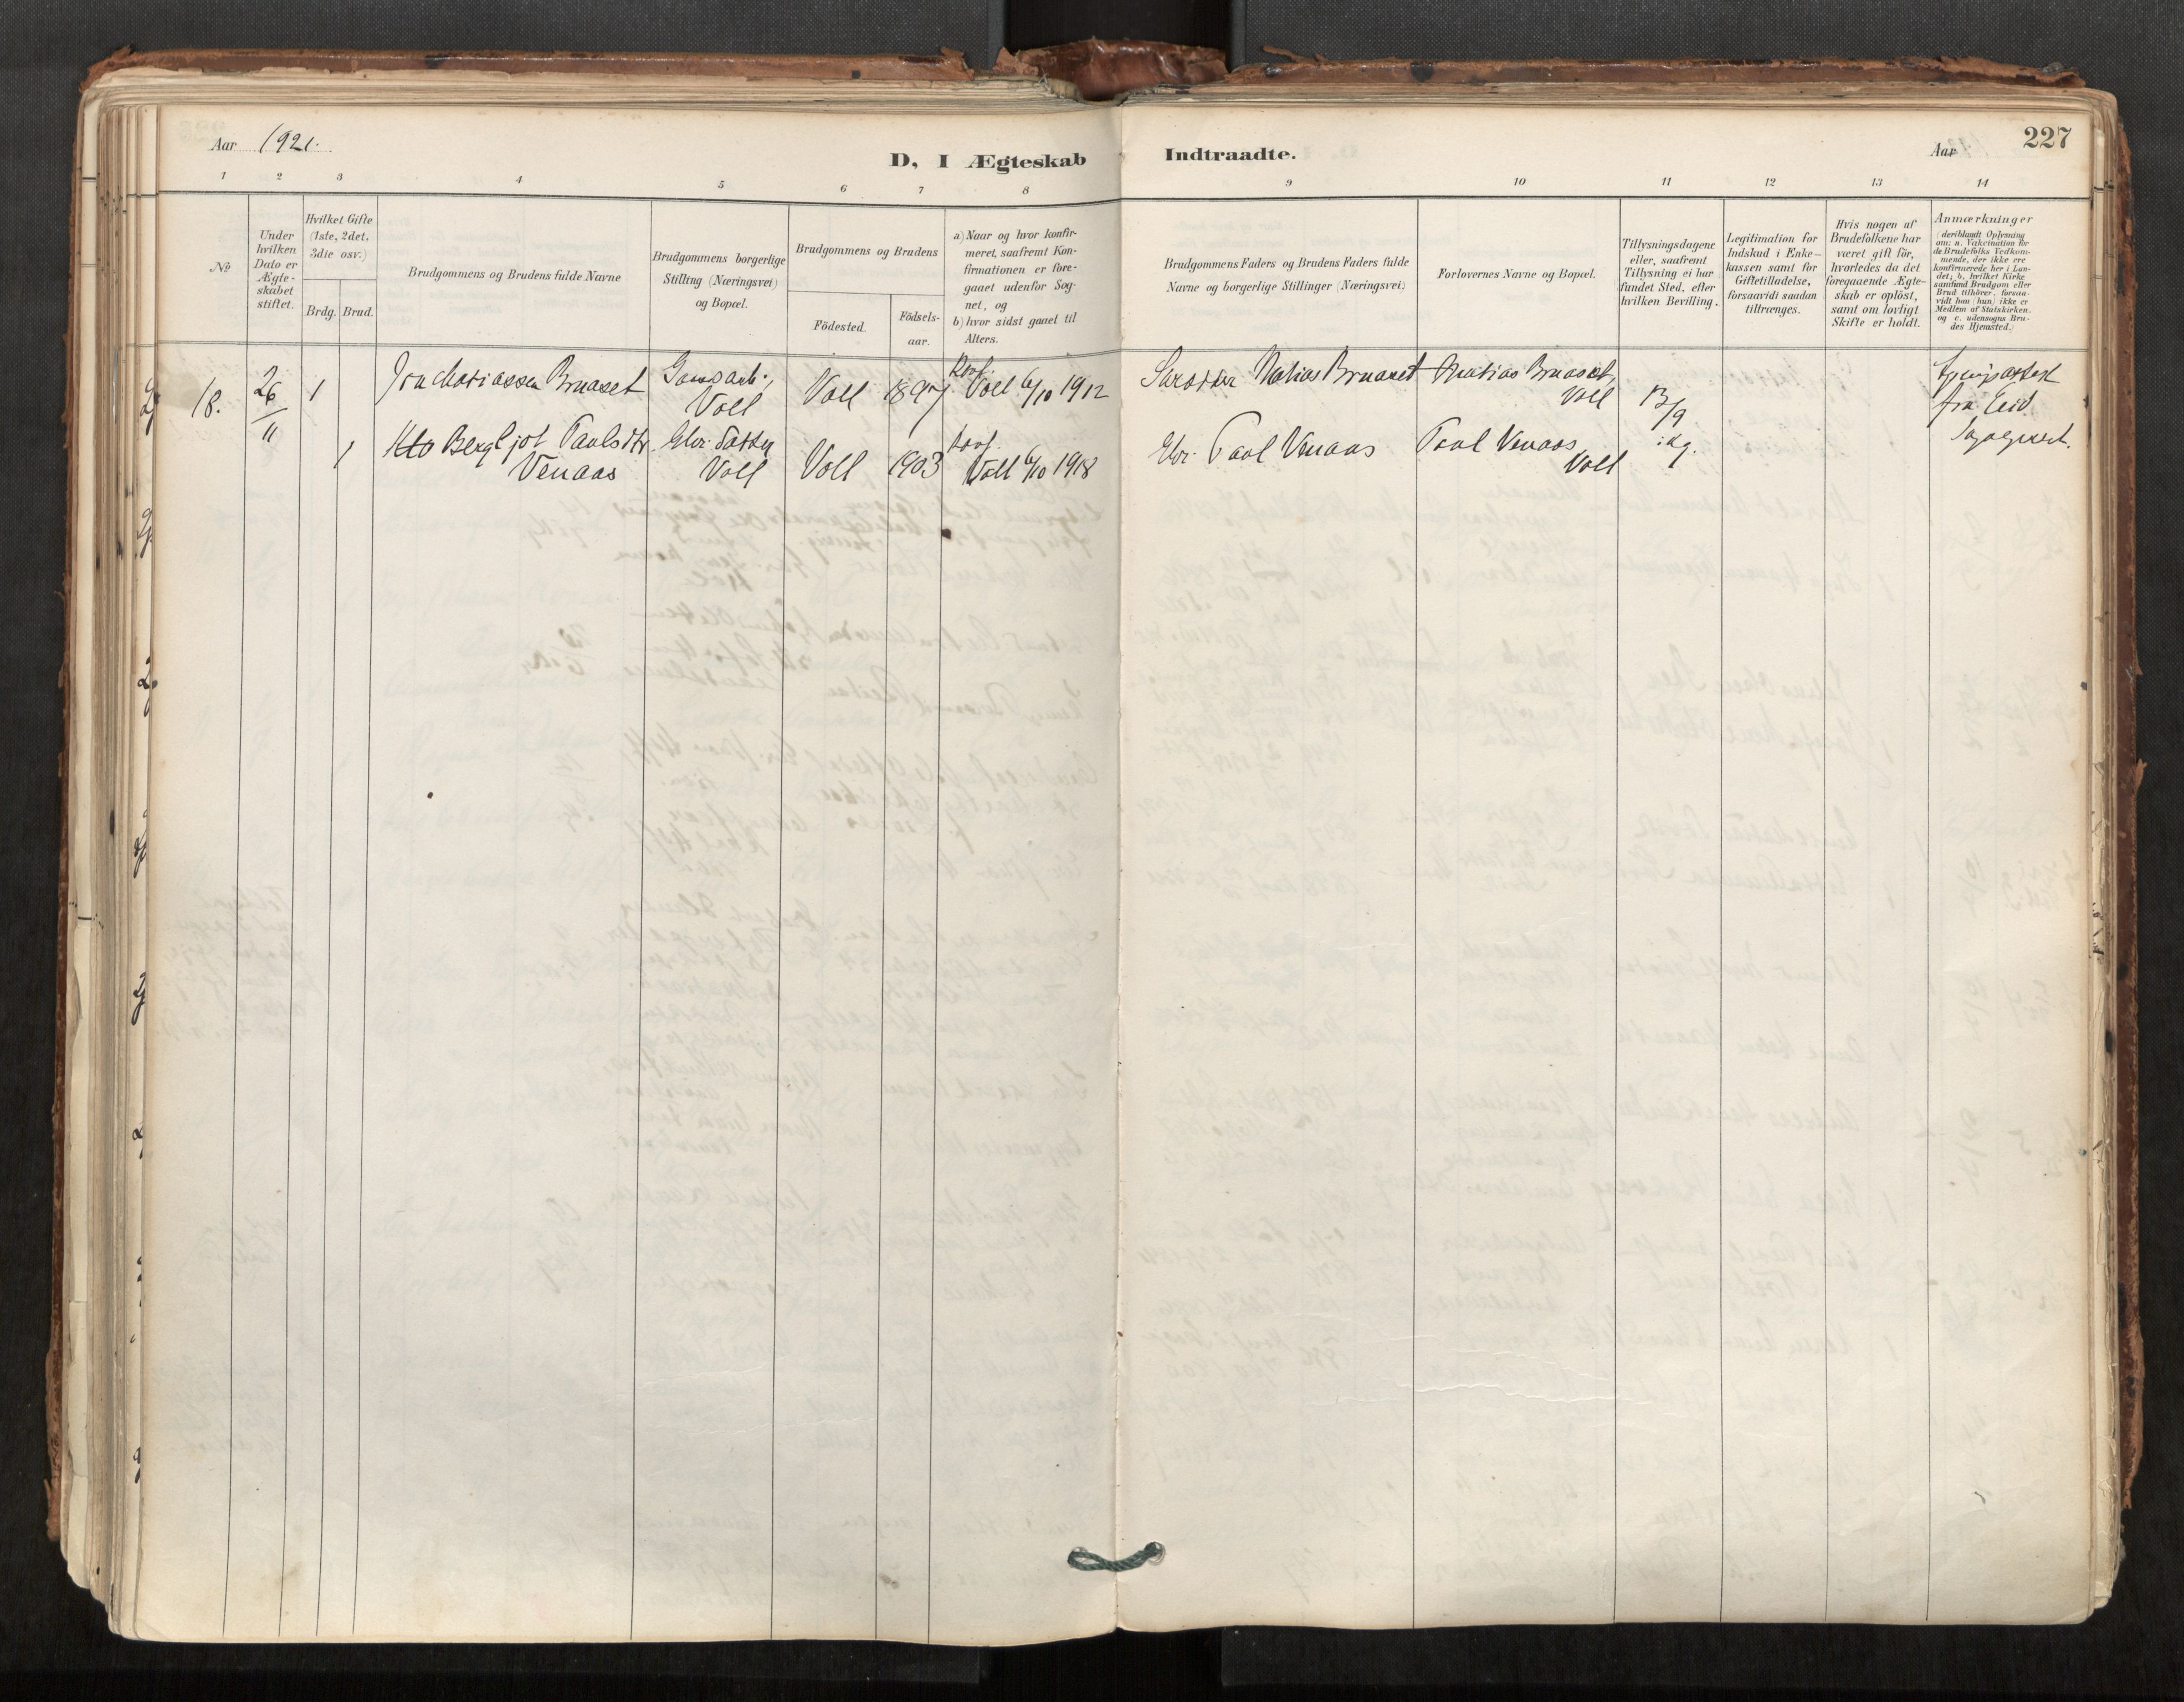 Aar 1921.
D, I Ægteskab
Indtraadte.
Aar
227
1 2 3 4 5 6 7 8 9 10 11 12 13 14
No
Under hvilken Dato er Ægte-skabet stiftet.
Hvilket Gifte (1ste, 2det, 3die osv.)
Brdg. Brud.
Brudgommens og Brudens fulde Navne
Brudgommens borgerlige Stilling (Næringsvei) og Bopæl.
Brudgommens og Brudens
Födested.
Födsels-aar.
a) Naar og hvor konfir-meret, saafremt Kon-firmationen er fore-gaaet udenfor Sog-net, og
b) hvor sidst gaaet til Alters.
Brudgommens Faders og Brudens Faders fulde Navne og borgerlige Stillinger (Næringsvei)
Forlovernes Navne og Bopæl.
Tillysningsdagene eller, saafremt Tillysning ei har fundet Sted, efter hvilken Bevilling.
Legitimation for Indskud i Enke-kassen samt for Giftetilladelse, forsaavidt saadan tiltrænges.
Hvis nogen af Brudefolkene har været gift för, hvorledes da det foregaaende Ægte-skab er oplöst, samt om lovligt Skifte er holdt.
Anmærkninger
(deriblandt Oplysning om: a. Vakcination for de Brudefolks Vedkom-mende, der ikke ere konfirmerede her i Lan-det; b, hvilket Kirke samfund Brudgom eller Brud tilhörer, forsaa-vidt han (hun) ikke er Medlem af Statskirken. og c. udensogns Bru-des Hjemsted.)
18. 26/11 1
Bruaset
Voll
Voll 1897
Voll 6/10 1912
Matias Bruaset
Matias Bruaset,
Voll
13/9
i kg.
fra Eid
1 Bergljot Paulsdtr.
Venaas
Gbr. datter
Voll
Voll 1903
Voll 6/10 1918
Gbr. Paul Venaas
Paul Venaas
Voll